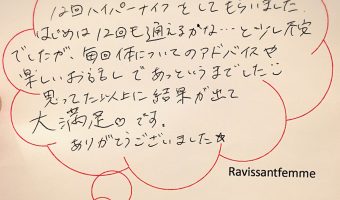 12回ハイパーナイフをしてもらいました
はじめは12回も通えるかな…と少し不安
でしたが、毎回体についてのアドバイスや
楽しいお話しであっというまでした
思ってた以上に結果が出て
大満足♡です。
ありがとうございました☆
Ravissantfemme